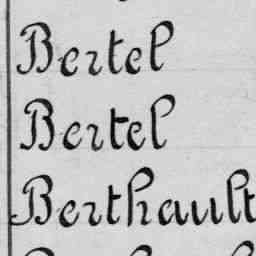 Bertel
Bertel
Berthault